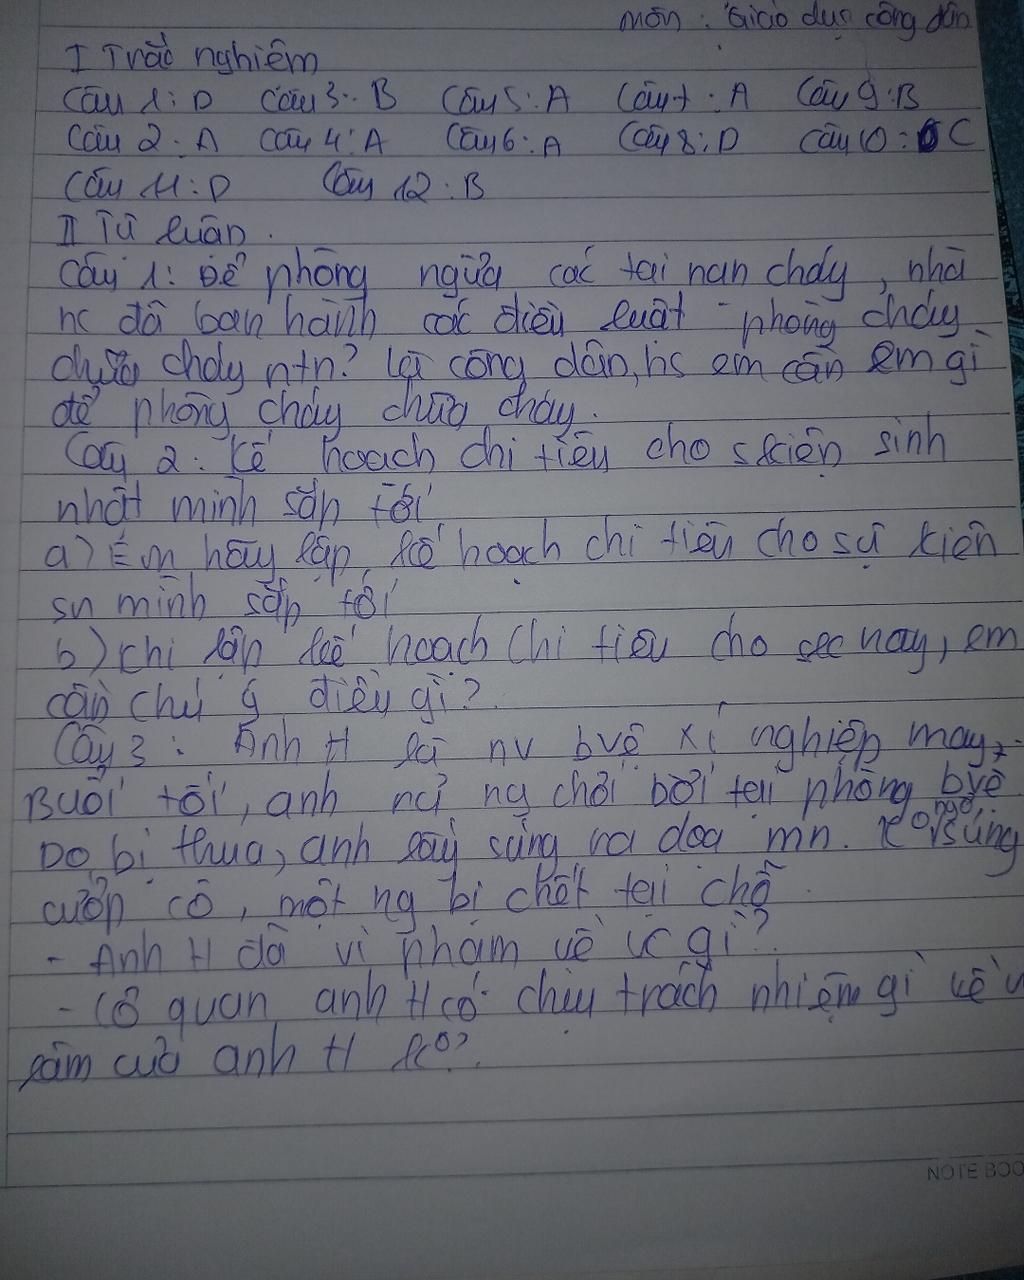 môn : Giáo dục công dân
I Trắc nghiệm
Câu 1: D Câu 3: B Câu 5: A Câu 7: A Câu 9: B
Câu 2: A Câu 4: A Câu 6: A Câu 8: D Câu 10: C
Câu 11: D Câu 12: B
II Tự luận.
Câu 1: Để phòng ngừa các tai nạn cháy, nhà
nc đã ban hành các điều luật phòng cháy
chữa cháy ntn? Là công dân, hs em cần em gì
để phòng cháy chữa cháy.
Câu 2: Kế hoạch chi tiêu cho skiện sinh
nhật mình sắp tới
a) Em hãy lập kế hoạch chi tiêu cho sự kiện
sn mình sắp tới
b) Khi lập kế hoạch chi tiêu cho này, em
cần chú ý điều gì?
Câu 3: Anh H là nv bvệ xí nghiệp may.
Buổi tối, anh rủ ng chơi bời tại phòng bvệ
Do bị thua, anh lấy súng ra dọa mn. Ko ngờ súng
cướp cò, một ng bị chết tại chỗ.
- Anh H đã vi phạm về gì?
- Cơ quan anh H có chịu trách nhiệm gì về v
làm của anh H ko?
NOTE BOO